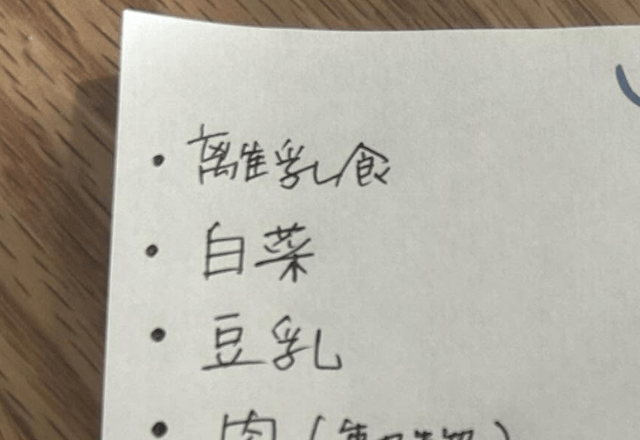 ・離乳食
・白菜
・豆乳
・肉(